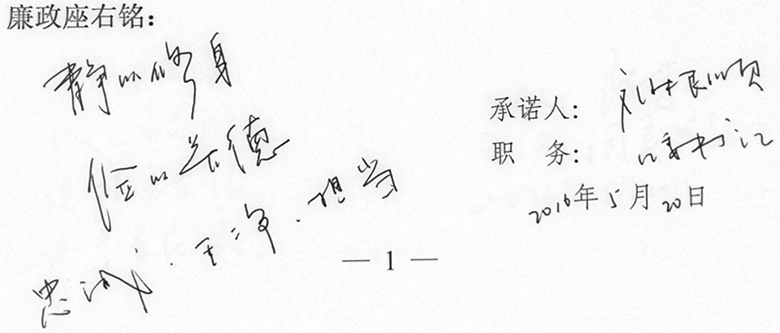 廉政座右铭：
静以修身
俭以养德
忠诚.干净.担当
承诺人：
职 务：书记
2016年5月20日
— 1 —